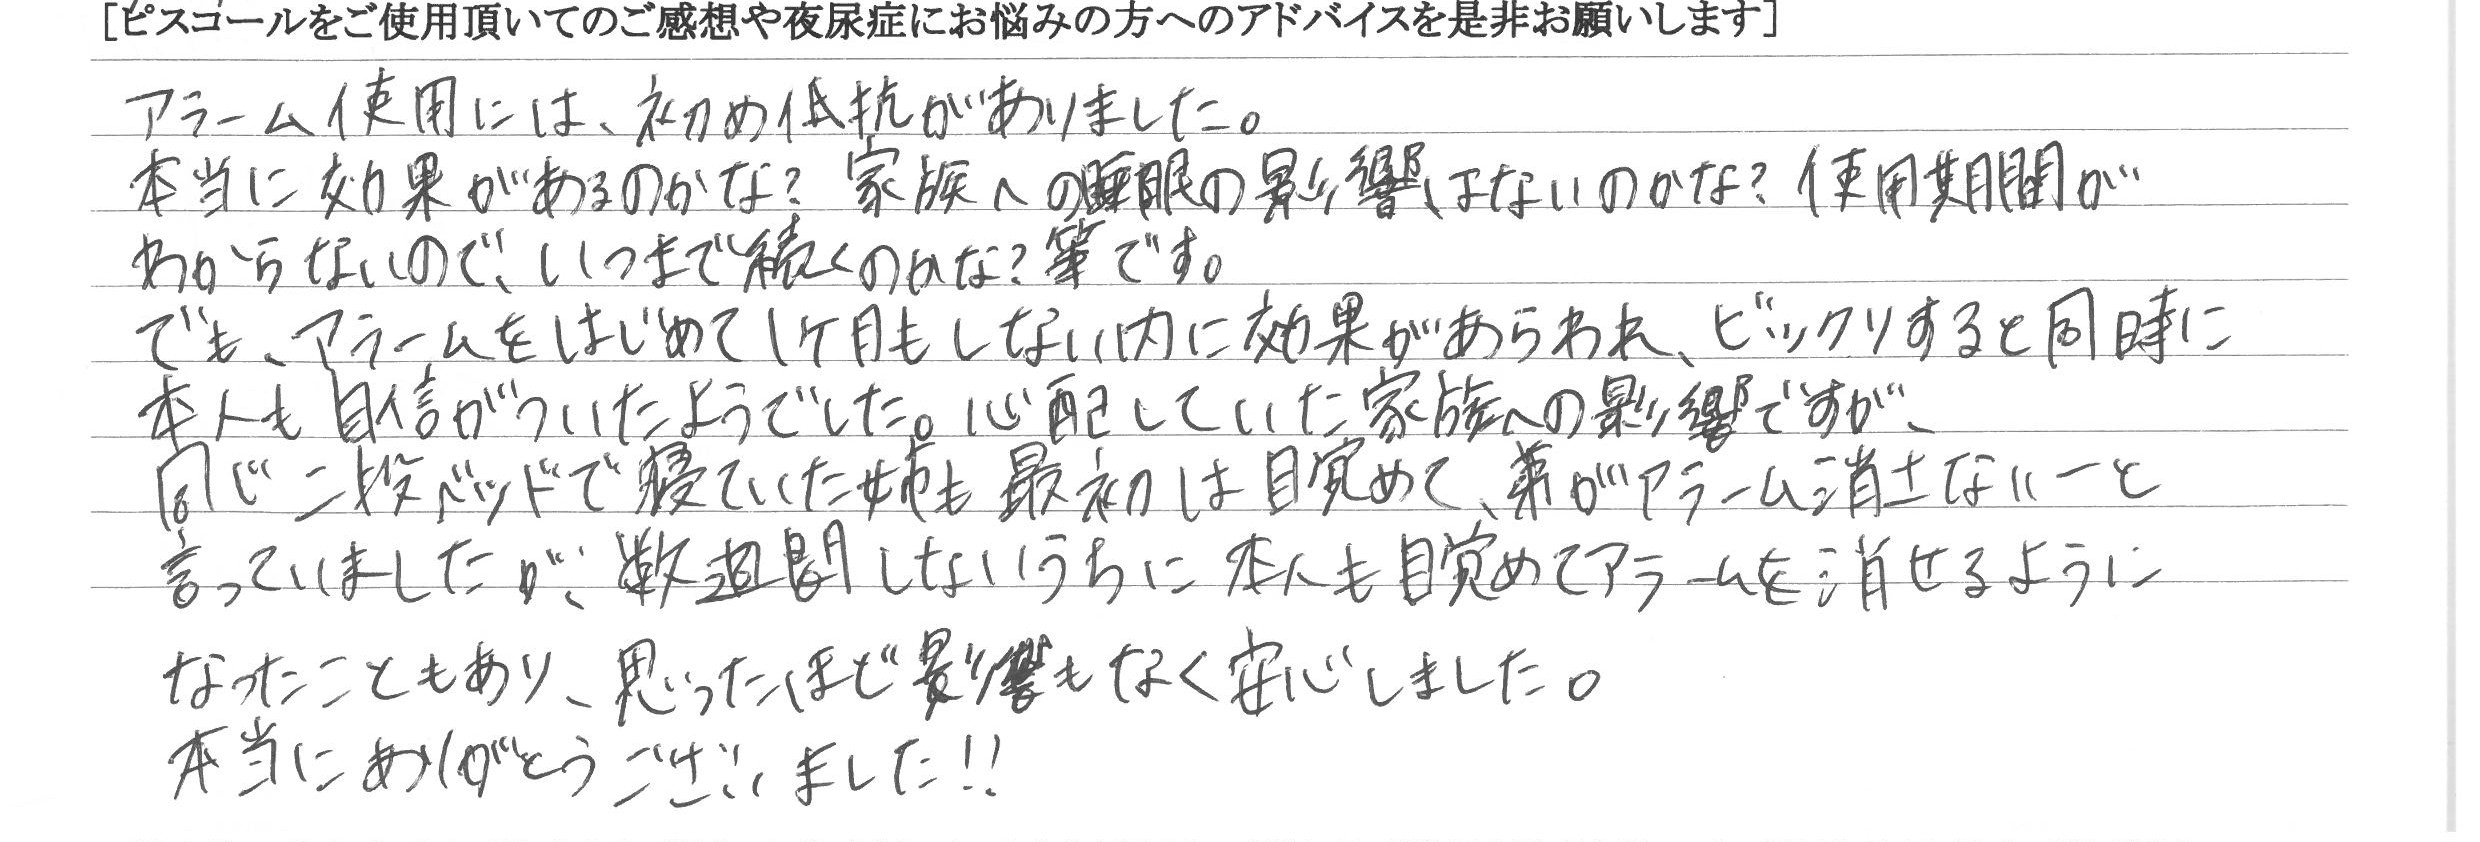 [ピスコールをご使用頂いてのご感想や夜尿症にお悩みの方へのアドバイスを是非お願いします]
アラーム使用には、初め低抗がありました。
本当に効果があるのかな?家族への睡眠の影響はないのかな?使用期間が
わからないので、いつまで続くのかな?等です。
でも、アラームをはじめて1ケ月もしない内に効果があらわれ、ビックリすると同時に
本人も自信がついたようでした。心配していた家族への影響ですが、
同じ二段ベッドで寝ていた姉も最初は目覚めて、弟がアラーム消さないーと
言っていましたが、数週間しないうちに本人も目覚めてアラームを消せるように
なったこともあり、思ったほど影響もなく安心しました。
本当にありがとうございました!!